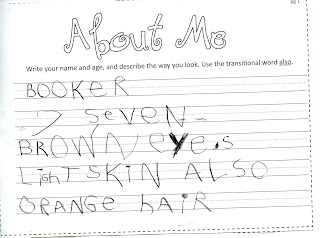 About Me
Write your name and age, and describe the way you look. Use the transitional word also.
BOOKER
7 SeVEN
BROWN eYe.s
LighT SKiN ALSO
ORANGe hAiR